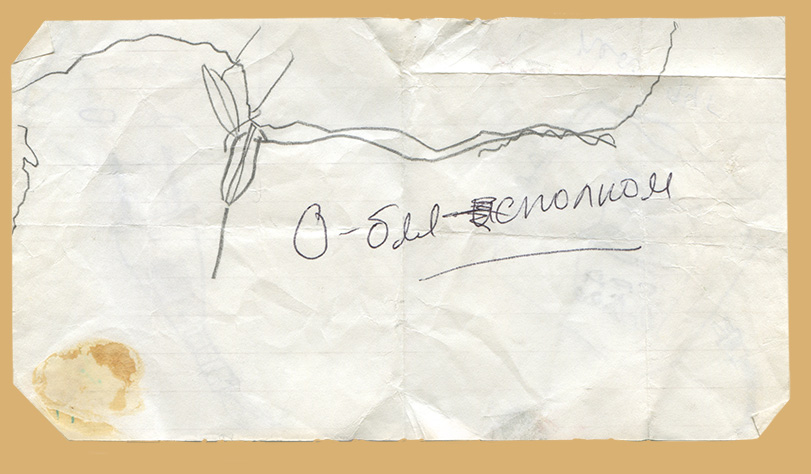 О-бля-исполком